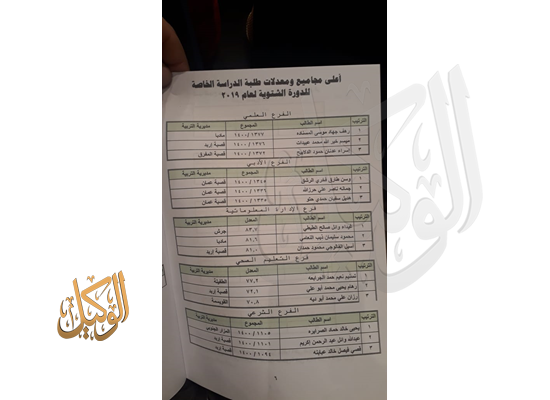 أعلى مجاميع ومعدلات طلبة الدراسة الخاصة
للدورة الشتوية لعام ٢٠١٩
الفرع العلمي
الترتيب اسم الطالب المجموع مديرية التربية
١ رهف جهاد موسى ١٤٠٠/١٣٧٧ مادبا
٢ ميسم خير الله محمد عبيدات ١٤٠٠/١٣٧٦ قصبة اربد
٣ اسراء عدنان حمود ١٤٠٠/١٣٧٢ المفرق
الفرع الأدبي
الترتيب اسم الطالب المجموع مديرية التربية
١ وسن طارق فخري الرشق ١٤٠٠/١٣٤٥ قصبة عمان
٢ جمانه ناصر علي حرزالله ١٤٠٠/١٣٣٩ قصبة عمان
٣ هديل سفيان حمدي ١٤٠٠/١٣٣٦ قصبة عمان
فرع الإدارة المعلوماتية
الترتيب اسم الطالب المعدل مديرية التربية
١ وائل صالح ٨٣,٧ جرش
٢ محمود سليمان ذيب النعامي ٨٢,٦ مادبا
٣ محمود حمدان ٨٢,٠ قصبة اربد
فرع التعليم الصحي
الترتيب اسم الطالب المعدل مديرية التربية
١ تسنيم نعيم حمد الجرابعه ٧٧,٢ الطفيلة
٢ رهام يحيى محمد أبو علي ٧٢,١ قصبة اربد
٣ رزان علي محمد أبو ديه ٧٠,٨ القويسمة
الفرع الشرعي
الترتيب اسم الطالب المجموع مديرية التربية
١ يحيى خالد حماد الصرايره ١٤٠٠/١١٠٨ المزار الجنوبي
٢ عبدالله وائل عبد الرحمن ١٤٠٠/١١٠١ قصبة اربد
٣ قصي فيصل خالد عبابنه ١٤٠٠/١٠٩٤ قصبة اربد
٦
الوكيل
الوكيل